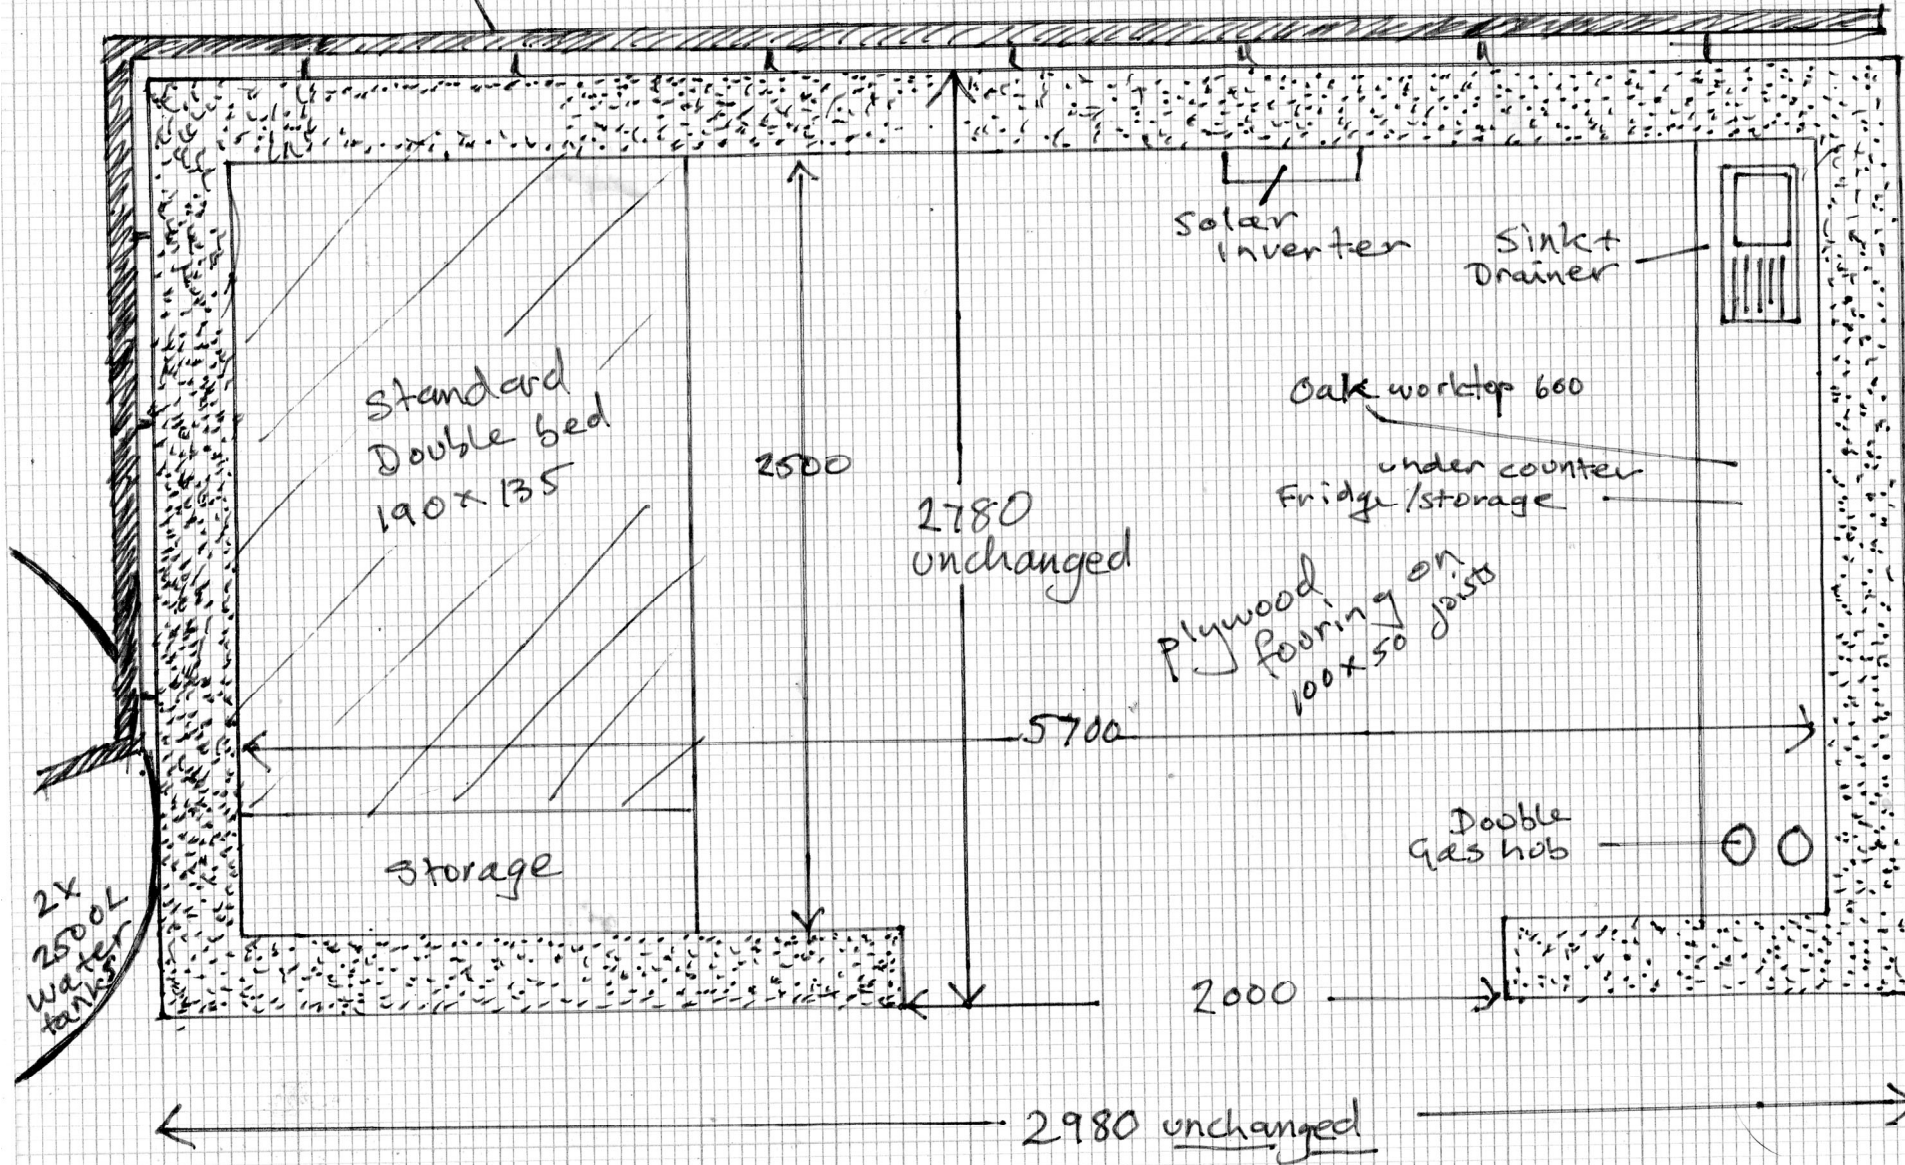 Solar
Inverter
Sink+
Drainer
Standard
Double bed
190 x 135
Oak worktop 600
under counter
Fridge/storage
2500
2780
unchanged
plywood
fooring on
100 x 50 joists
5700
Double
Gas hob
Storage
2x
2500L
water
tanks
2000
2980 unchanged